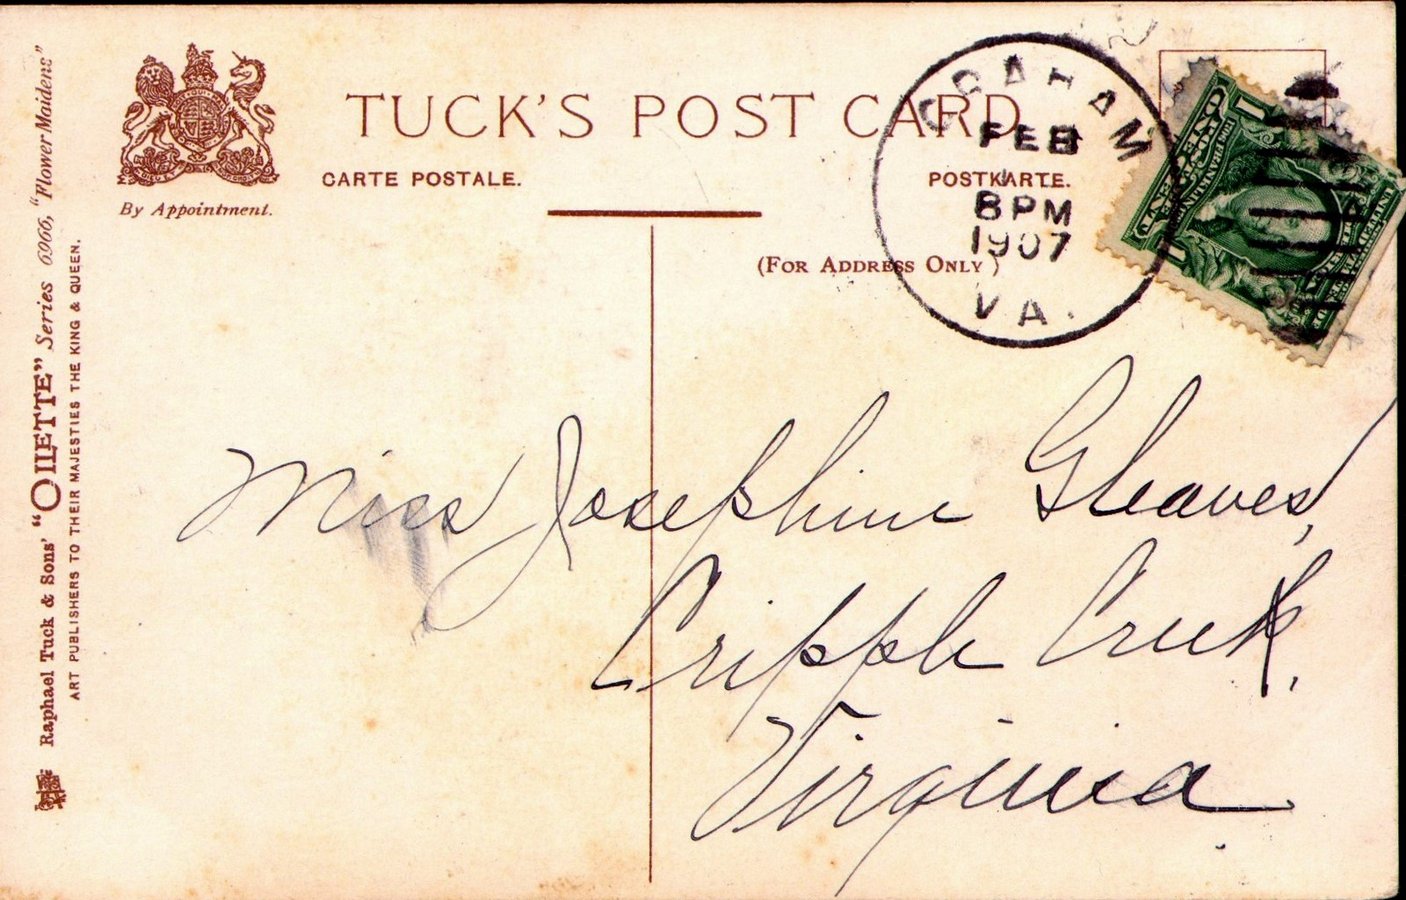 TUCK'S POST CARD
CARTE POSTALE.
POSTKARTE.
By Appointment.
(FOR ADDRESS ONLY)
GRAHAM
FEB
1
8 PM
1907
VA.
Miss Josephine Gleaves,
Cripple Creek,
Virginia
Raphael Tuck & Sons' "OILETTE" Series 6966, "Flower Maidens"
ART PUBLISHERS TO THEIR MAJESTIES THE KING & QUEEN.